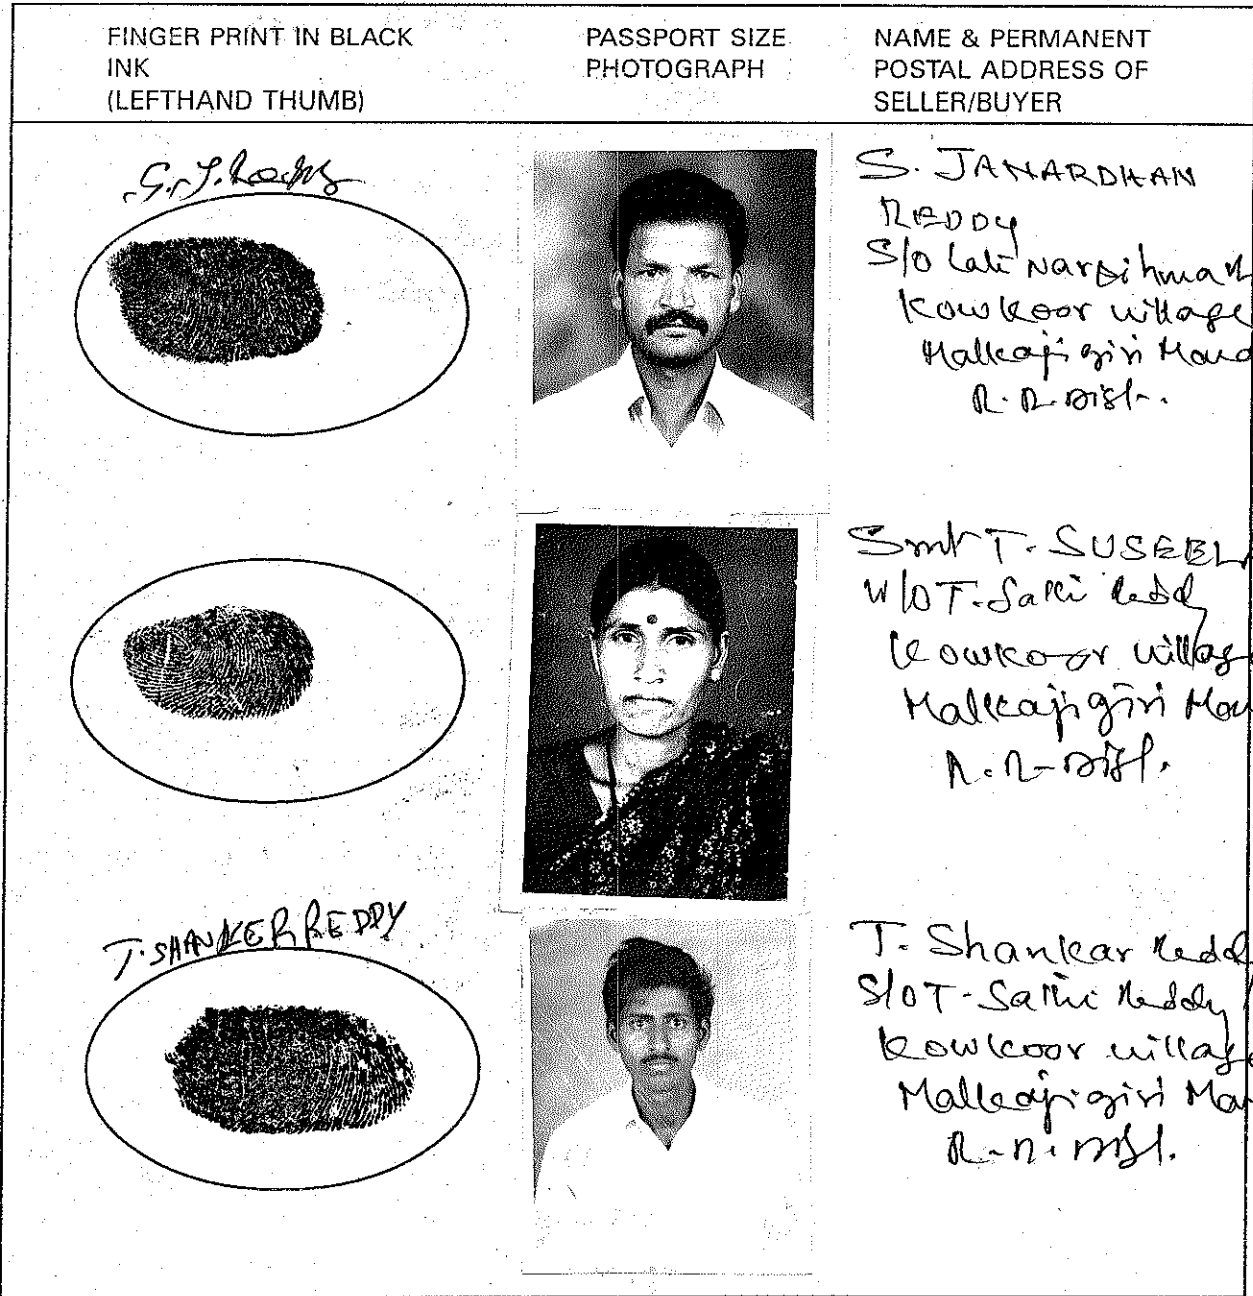 FINGER PRINT IN BLACK
INK
(LEFTHAND THUMB)
PASSPORT SIZE
PHOTOGRAPH
NAME & PERMANENT
POSTAL ADDRESS OF
SELLER/BUYER
S. JANARDHAN
REDDY
S/o Late
Kowkoor village
Malkajigiri
R.R. Dist.
Smt T. SUSEEL
W/o T. Reddy
Kowkoor villag
Malkajigiri
R.R. Dist.
T. SHANKER REDDY
T. Shankar Redd
S/o T. Reddy
Kowkoor villag
Malkajigiri
R.R. Dist.